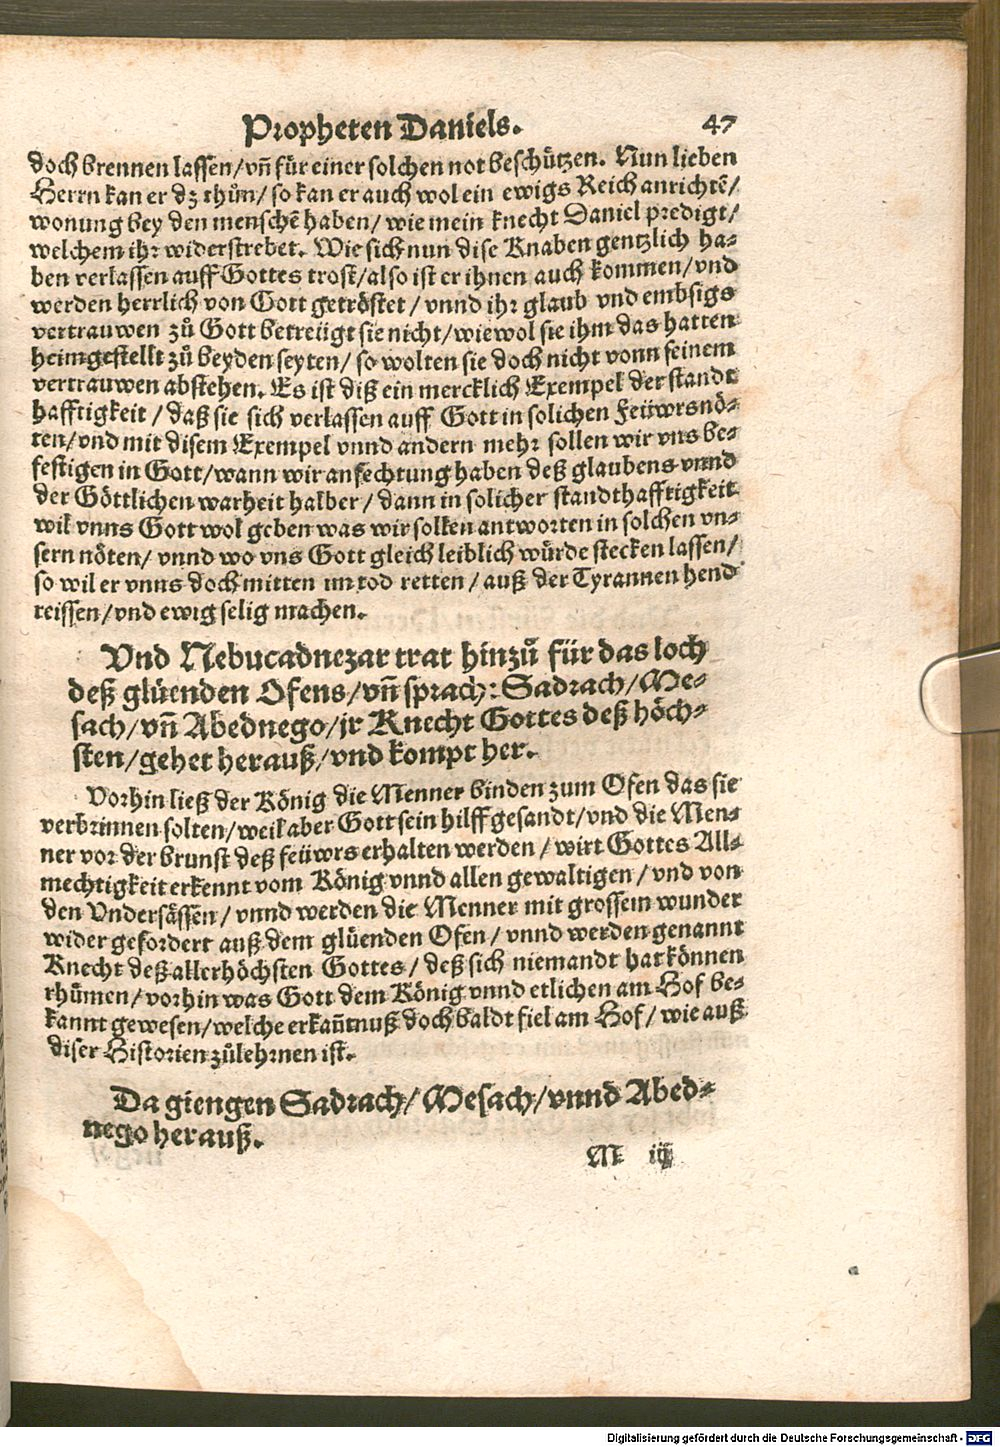 Propheten Daniels. 47
doch brennen lassen/vñ für einer solchen not beschützen. Nun lieben
Herrn kan er dz thůn/ so kan er auch wol ein ewigs Reich anrichtẽ/
wonung bey den menschẽ haben/ wie mein knecht Daniel predigt/
welchem ihr widerstrebet. Wie sich nun dise Knaben gentzlich ha-
ben verlassen auff Gottes trost/also ist er ihnen auch kommen/vnd
werden herrlich von Gott getröstet/ vnnd ihr glaub vnd embsigs
vertrauwen zů Gott betreügt sie nicht/wiewol sie ihm das hatten
heimgestellt zů beyden seyten/ so wolten sie doch nicht vonn seinem
vertrauwen abstehen. Es ist diß ein mercklich Exempel der standt
hafftigkeit/ daß sie sich verlassen auff Gott in solichen Feüwrsnö-
ten/vnd mit disem Exempel vnnd andern mehr sollen wir vns be-
festigen in Gott/wann wir anfechtung haben deß glaubens vnnd
der Göttlichen warheit halber/ dann in solicher standthafftigkeit
wil vnns Gott wol geben was wir sollen antworten in solchen vn-
sern nöten/ vnnd wo vns Gott gleich leiblich würde stecken lassen/
so wil er vnns doch mitten im tod retten/ auß der Tyrannen hend
reissen/vnd ewig selig machen.
Vnd Nebucadnezar trat hinzů für das loch
deß glüenden Ofens/vñ sprach: Sadrach/Me-
sach/vñ Abednego/jr Knecht Gottes deß höch-
sten/gehet herauß/vnd kompt her.
Vorhin ließ der König die Menner binden zum Ofen das sie
verbrinnen solten/weil aber Gott sein hilff gesandt/vnd die Men-
ner vor der brunst deß feüwrs erhalten werden/ wirt Gottes All-
mechtigkeit erkennt vom König vnnd allen gewaltigen/ vnd von
den Vndersässen/ vnnd werden die Menner mit grossem wunder
wider gefordert auß dem glüenden Ofen/ vnnd werden genannt
Knecht deß allerhöchsten Gottes/ deß sich niemandt hat können
rhůmen/vorhin was Gott dem König vnnd etlichen am Hof be-
kannt gewesen/welche erkañtnuß doch baldt fiel am Hof/ wie auß
diser Historien zůlehrnen ist.
Da giengen Sadrach/Mesach/vnnd Abed-
nego herauß.
M iij
Digitalisierung gefördert durch die Deutsche Forschungsgemeinschaft - DFG